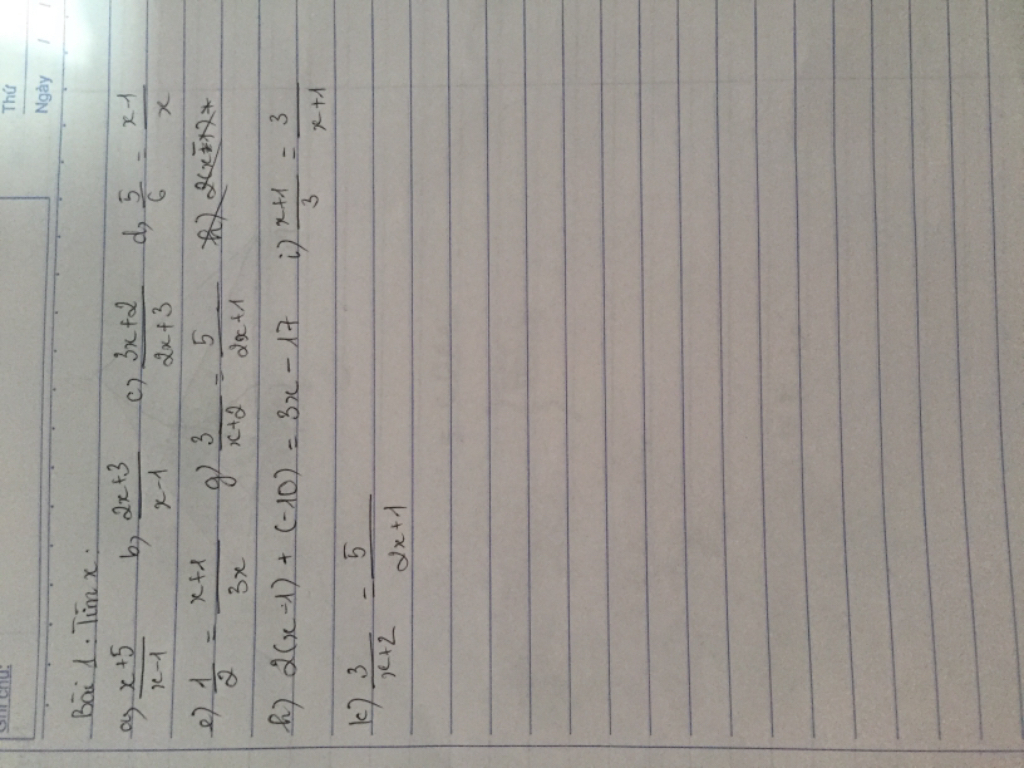 Thứ
Ngày / /
Ghi chú:
Bài 1: Tìm x.
a) \frac{x+5}{x-1} b) \frac{2x+3}{x-1} c) \frac{3x+2}{2x+3} d) \frac{5}{6} = \frac{x-1}{x}
e) \frac{1}{2} = \frac{x+1}{3x} g) \frac{3}{x+2} = \frac{5}{2x+1}
h) 2(x-1) + (-10) = 3x - 17 i) \frac{x+1}{3} = \frac{3}{x+1}
k) \frac{3}{x+2} = \frac{5}{2x+1}